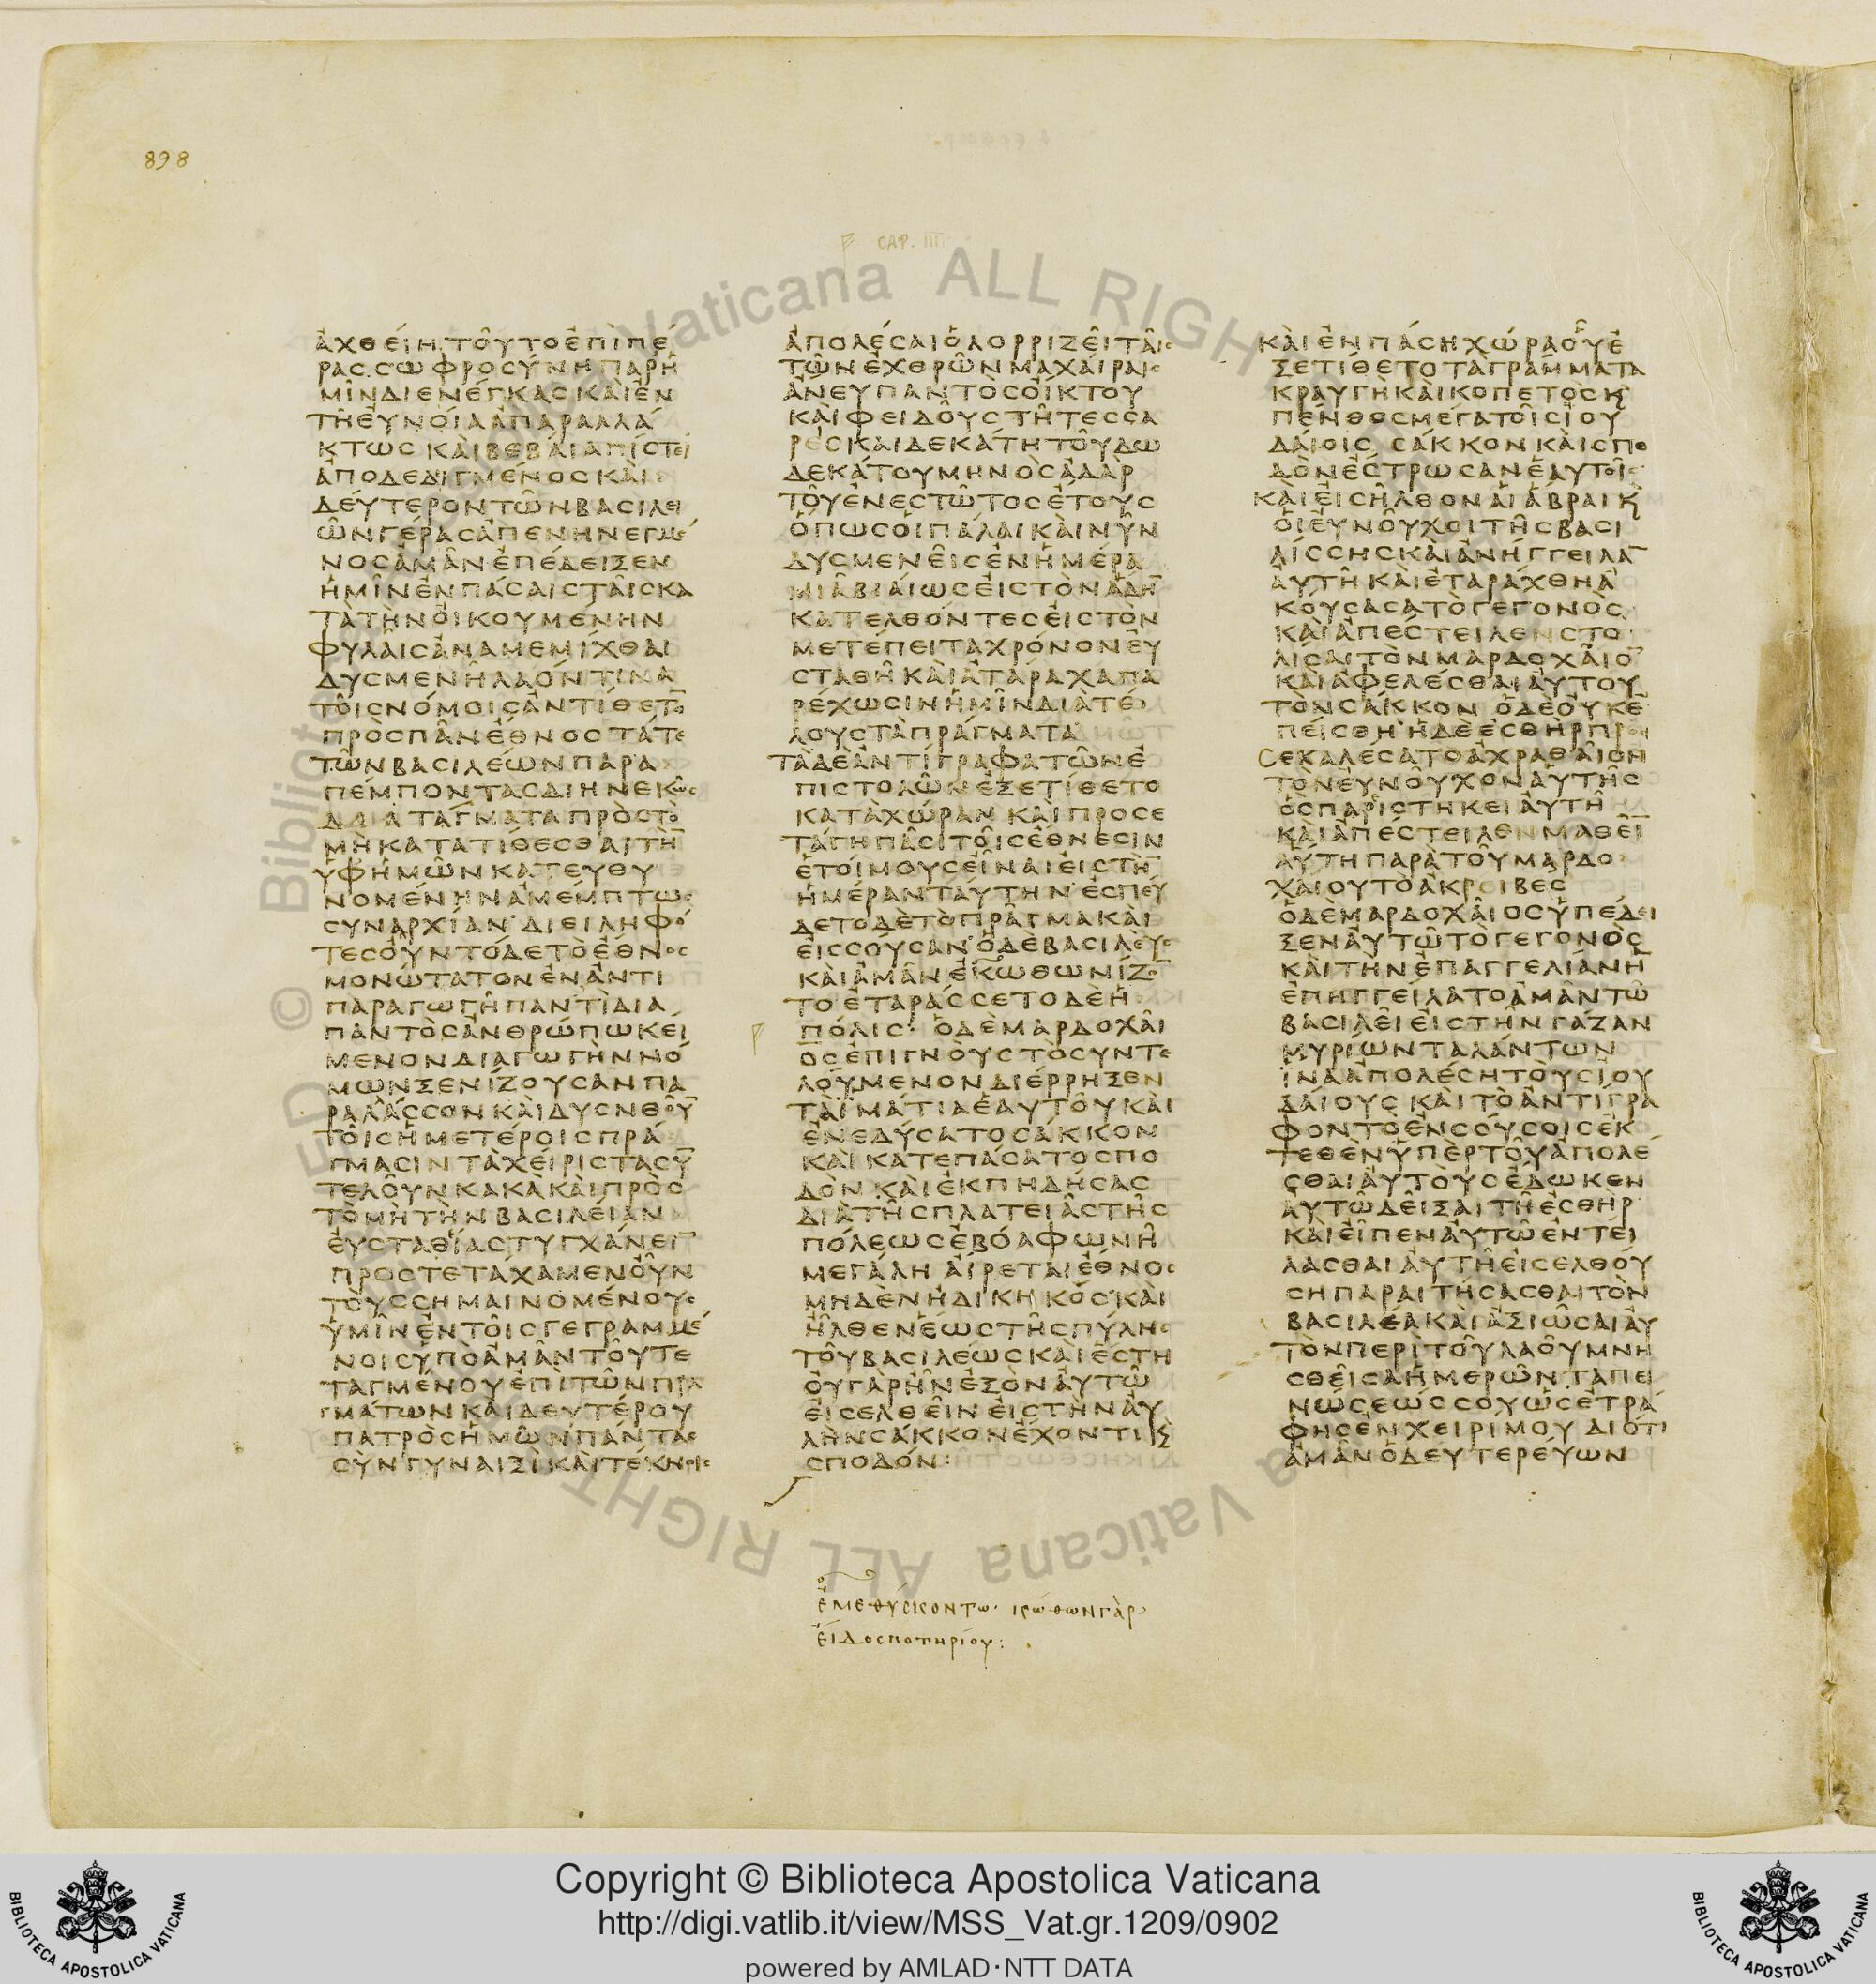 898
CAP. IIII
ἀχθείη τοῦτο ἐπὶ πέ
ρας. σωφροσύνη παρ ἡ
μῖν διενέγκας καὶ ἐν
τῆ ἐυνοία ἀπαραλλά
κτως καὶ βεβαία πίστει
ἀποδεδιγμένος καὶ
δέυτερον τῶν βασιλει
ῶν γέρας ἀπενηνεγμέ
νος ἁμὰν ἐπέδειξεν
ἡμῖν ἐν πάσαις ταῖς κα
τὰ τὴν ὀικουμένην
φυλαῖς ἀναμεμίχθαι
δυσμενῆ λαόν τινα
τοῖς νόμοις ἀντίθετο̅
πρὸς πᾶν ἔθνος τά τε
τῶν βασιλέων παρα
πέμποντας διηνεκῶς
διατάγματα πρὸς τὸ
μὴ κατατίθεσθαι τὴ̅
ὑφ ἡμῶν κατευθυ
νομένην ἀμέμπτως
συναρχίαν διειληφό
τες οὖν τόδε τὸ ἔθνος
μονώτατον ἐν ἀντι
παραγωγῆ παντὶ δια
παντὸς ἀνθρώπω κεί
μενον διαγωγὴν νό
μων ξενίζουσαν πα
ραλάσσον καὶ δυσνοοῦ̅
τοῖς ἡμετέροις πρά
γμασιν τὰ χείριστα συ̅
τελοῦν κακὰ καὶ πρὸς
τὸ μὴ τὴν βασιλείαν
ἐυσταθίας τυγχάνει̅
προστετάχαμεν οὖν
τοὺς σημαινομένους
ὑμῖν ἐν τοῖς γεγραμμέ
νοις ὑπὸ ἁμὰν τοῦ τε
ταγμένου ἐπὶ τῶν πρα
γμάτων καὶ δευτέρου
πατρὸς ἡμῶν πάντας
σὺν γυναιξὶ καὶ τέκνοις
ἀπολέσαι ὁλορριζεὶ ταῖς
τῶν ἐχθρῶν μαχαίραις
ἄνευ παντὸς οἴκτου
καὶ φειδοῦς τῆ τεσσα
ρεσκαιδεκάτη τοῦ δω
δεκάτου μηνὸς ἀδὰρ
τοῦ ἐνεστῶτος ἔτους
ὅπως οἱ πάλαι καὶ νῦν
δυσμενεῖς ἐν ἡμέρα
μιᾶ βιαίως εἰς τὸν ἅδη̅
κατελθόντες εἰς τὸν
μετέπειτα χρόνον ἐυ
σταθῆ καὶ ἀτάραχα πα
ρέχωσιν ἡμῖν διὰ τέ
λους τὰ πράγματα
τὰ δὲ ἀντίγραφα τῶν ἐ
πιστολῶν ἐξετίθετο
κατὰ χώραν καὶ προσε
τάγη πᾶσι τοῖς ἔθνεσιν
ἑτοίμους εἶναι εἰς τὴ̅
ἡμέραν ταύτην ἐσπευ
δετο δὲ τὸ πρᾶγμα καὶ
εἰς σουσαν ὁ δὲ βασιλεὺς
καὶ ἁμὰν ἐκωθωνίζο̅
το ἐταράσσετο δὲ ἡ
πόλις· ὁ δὲ μαρδοχαῖ
ος ἐπιγνοὺς τὸ συντε
λούμενον διέρρηξεν
τὰ ἱμάτια ἑαυτοῦ καὶ
ἐνεδύσατο σάκκον
καὶ κατεπάσατο σπο
δὸν καὶ ἐκπηδήσας
διὰ τῆς πλατείας τῆς
πόλεως ἐβόα φωνῆ
μεγάλη αἴρεται ἔθνος
μηδὲν ἠδικηκός· καὶ
ἦλθεν ἕως τῆς πύλης
τοῦ βασιλέως καὶ ἔστη
οὐ γὰρ ἦν ἐξὸν αὐτῶ
εἰσελθεῖν εἰς τὴν αὐ
λὴν σάκκον ἔχοντι ϗ
σποδόν:
καὶ ἐν πάση χώρα οὗ ἐ
ξετίθετο τὰ γράμματα
κραυγὴ καὶ κοπετὸς ϗ
πένθος μέγα τοῖς ἰου
δαίοις σάκκον καὶ σπο
δὸν ἔστρωσαν ἑαυτοῖς
καὶ εἰσῆλθον αἱ ἅβραι ϗ
οἱ ἐυνοῦχοι τῆς βασι
λίσσης καὶ ἀνήγγειλα̅
αὐτῆ καὶ ἐταράχθη ἀ
κούσασα τὸ γεγονὸς
καὶ ἀπέστειλεν στο
λίσαι τὸν μαρδοχαῖο̅
καὶ ἀφελέσθαι αὐτοῦ
τὸν σάκκον ὁ δὲ οὐκ ἐ
πείσθη ἡ δὲ ἐσθὴρ προ
σεκαλέσατο ἀχραθαῖον
τὸν ἐυνοῦχον αὐτῆς
ὃς παριστήκει αὐτῆ
καὶ ἀπέστειλεν μαθεῖ̅
αὐτῆ παρὰ τοῦ μαρδο
χαίου τὸ ἀκρειβές
ὁ δὲ μαρδοχαῖος ὑπέδει
ξεν αὐτῶ τὸ γεγονὸς
καὶ τὴν ἐπαγγελίαν ἣ̅
ἐπηγγείλατο ἁμὰν τῶ
βασιλεῖ εἰς τὴν γάζαν
μυρίων ταλάντων
ἵνα ἀπολέση τοὺς ἰου
δαίους καὶ τὸ ἀντίγρα
φον τὸ ἐν σούσοις ἐκ
τεθὲν ὑπὲρ τοῦ ἀπολέ
σθαι αὐτοὺς ἔδωκεν
αὐτῶ δεῖξαι τῆ ἐσθὴρ
καὶ εἶπεν αὐτῶ ἐντεί
λασθαι αὐτῆ εἰσελθού
ση παραιτήσασθαι τὸν
βασιλέα καὶ ἀξιῶσαι αὐ
τὸν περὶ τοῦ λαοῦ μνη
σθεῖσα ἡμερῶν ταπει
νώσεώς σου ὡς ἐτρά
φης ἐν χειρί μου διότι
ἁμὰν ὁ δευτερεύων
ἐμεθύσκοντω· κώθων γὰρ
εἶδος ποτηρίου:
Copyright © Biblioteca Apostolica Vaticana
http://digi.vatlib.it/view/MSS_Vat.gr.1209/0902
powered by AMLAD·NTT DATA
BIBLIOTECA APOSTOLICA VATICANA
BIBLIOTECA APOSTOLICA VATICANA